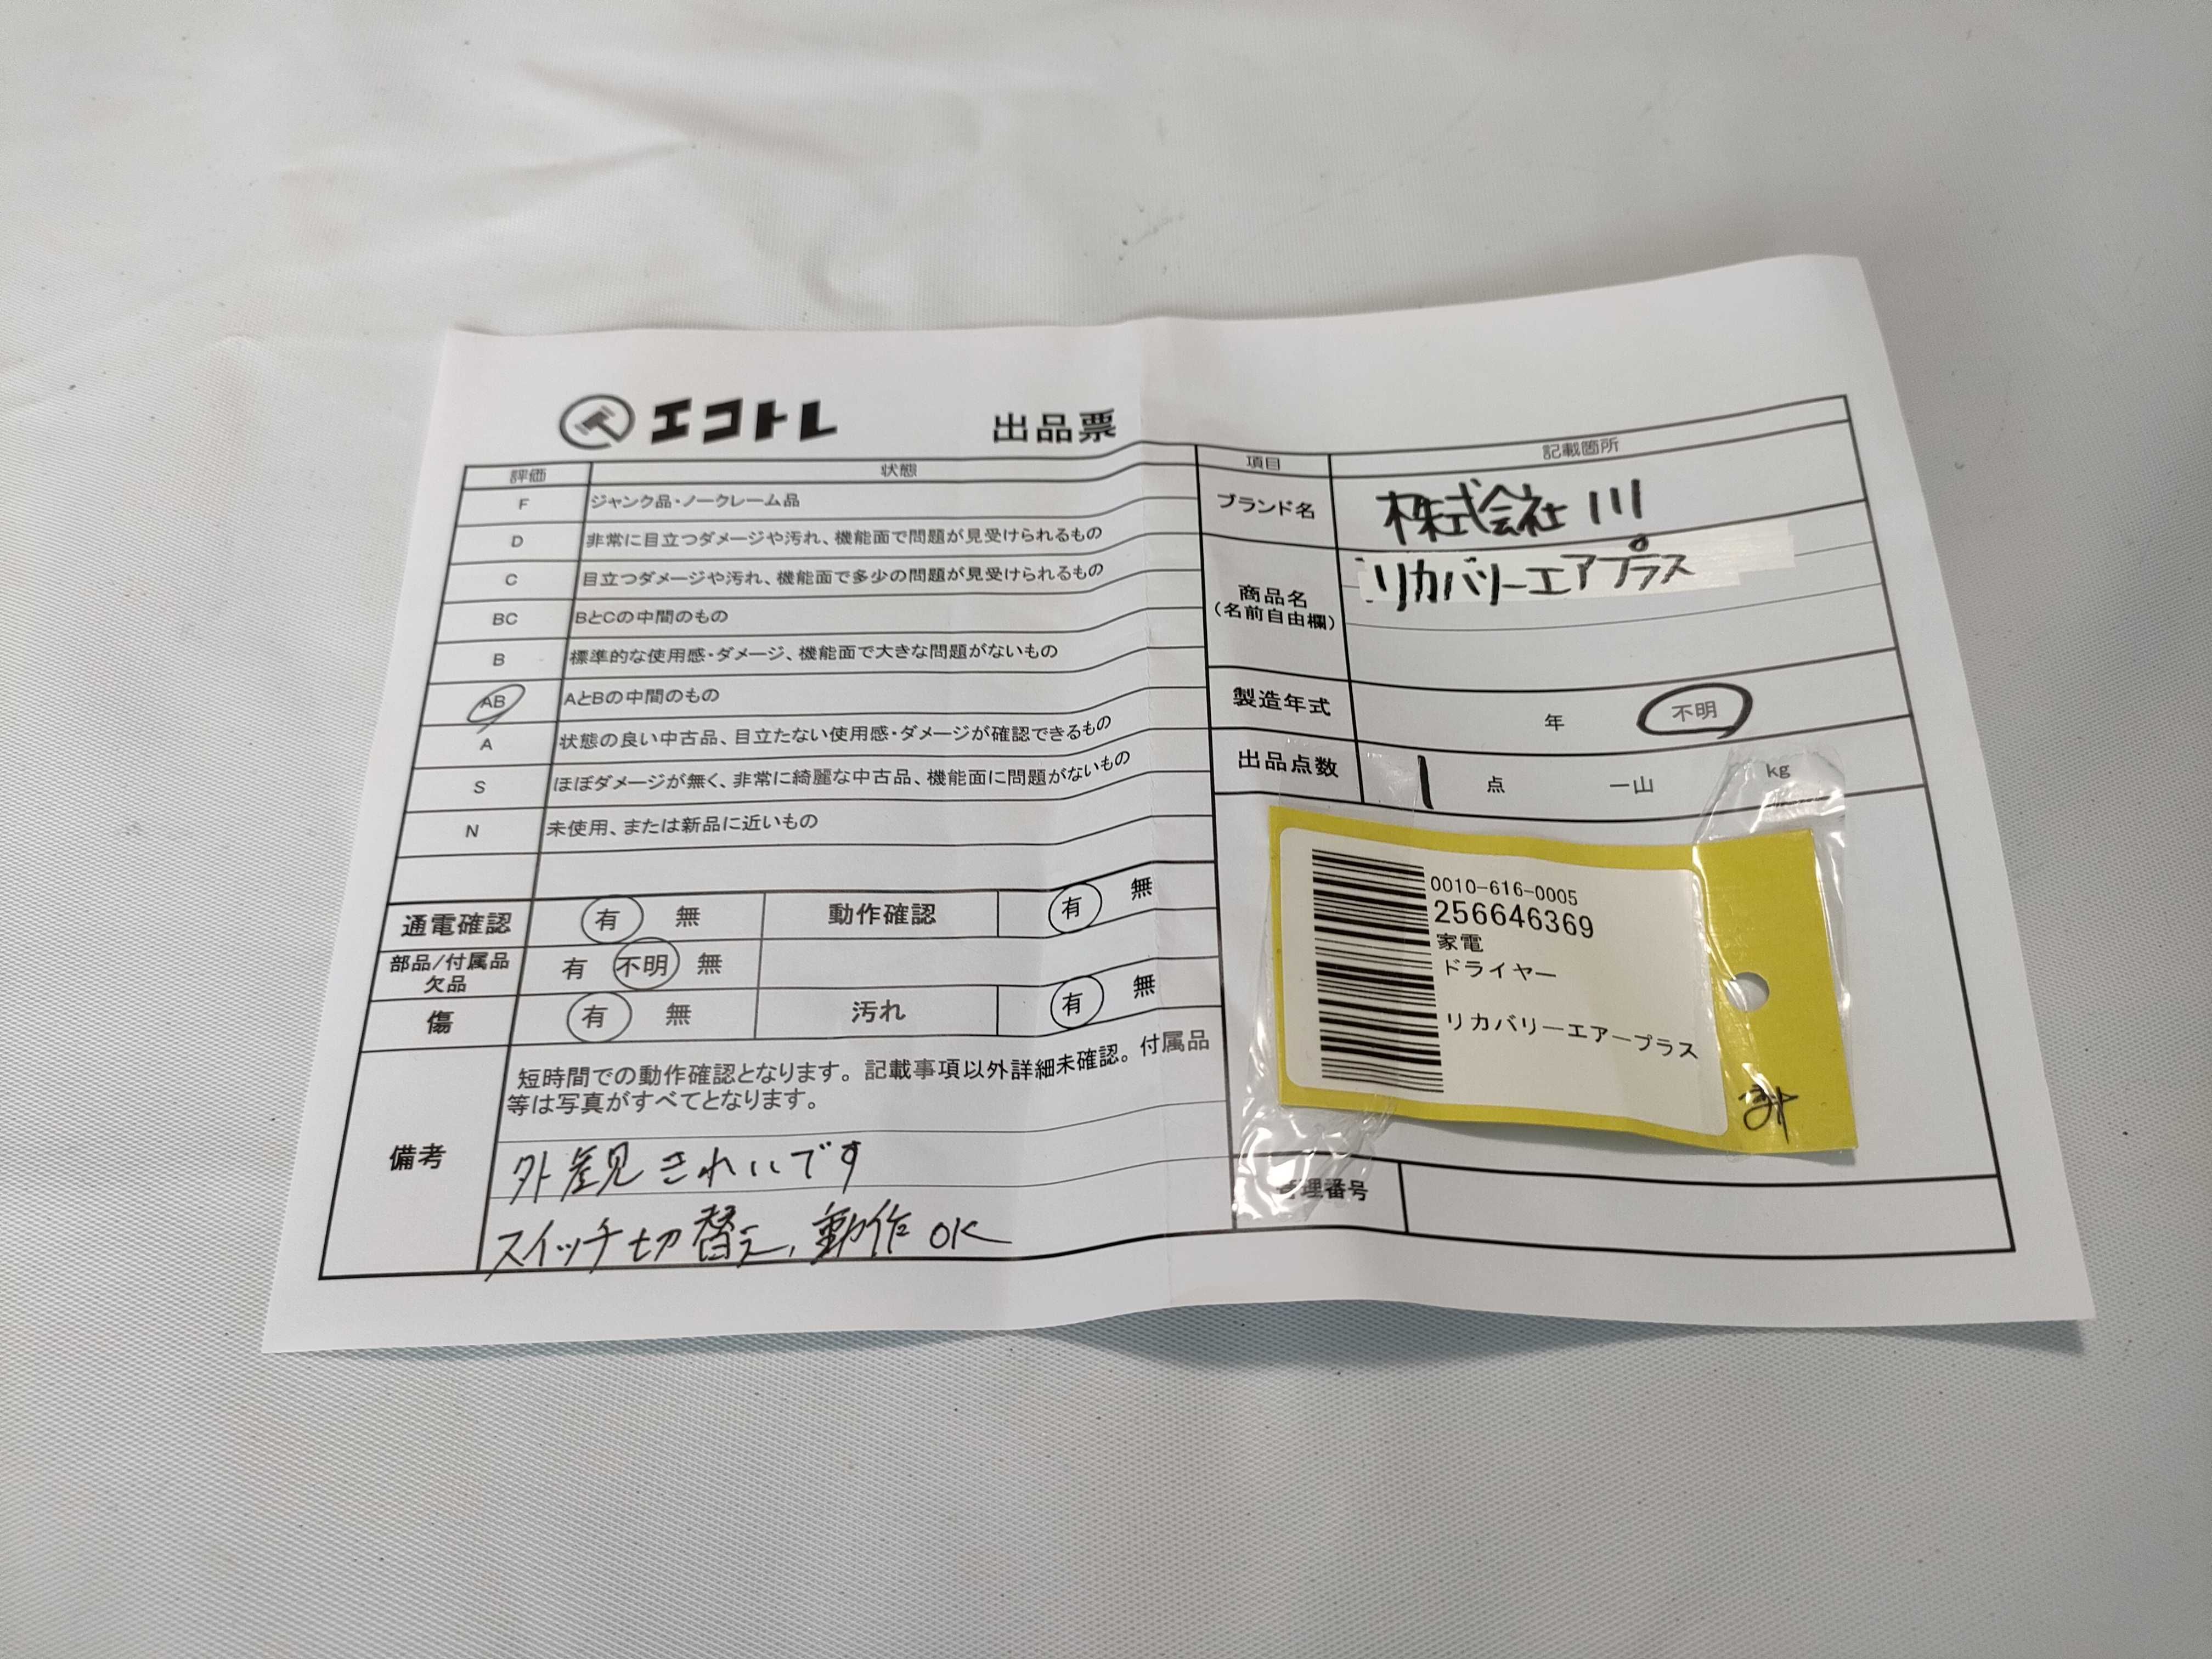 エコトレ 出品票
評価 状態
F ジャンク品・ノークレーム品
D 非常に目立つダメージや汚れ、機能面で問題が見受けられるもの
C 目立つダメージや汚れ、機能面で多少の問題が見受けられるもの
BC BとCの中間のもの
B 標準的な使用感・ダメージ、機能面で大きな問題がないもの
AB AとBの中間のもの
A 状態の良い中古品、目立たない使用感・ダメージが確認できるもの
S ほぼダメージが無く、非常に綺麗な中古品、機能面に問題がないもの
N 未使用、または新品に近いもの
通電確認 有 無 動作確認 有 無
部品/付属品 有 不明 無
欠品
傷 有 無 汚れ 有 無
備考
短時間での動作確認となります。記載事項以外詳細未確認。付属品
等は写真がすべてとなります。
外観きれいです
スイッチ切替え、動作OK
項目 記載箇所
ブランド名 株式会社 川
商品名 リカバリーエアプラス
(名前自由欄)
製造年式 年 不明
出品点数 1 点 一山 kg
0010-616-0005
256646369
家電
ドライヤー
リカバリーエアープラス
管理番号